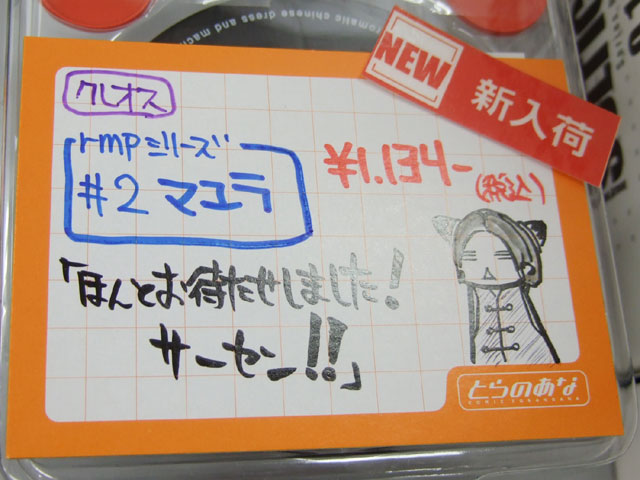 romatic chinese dress and mach
NEW
新入荷
クレオス
rmpシリーズ
#2 マユラ
¥1.134-
(税込)
「ほんとお待たせしました!
サーセン!!」
とらのあな